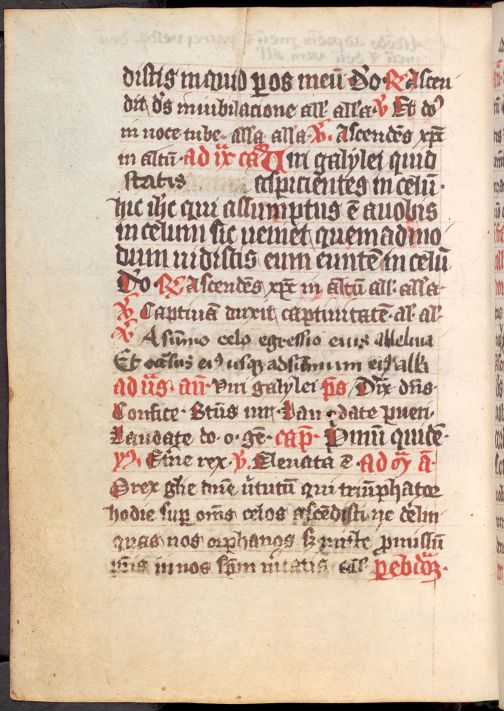 distis in quid p os meū · Do · R Ascen
dit ds in iubilacione all' alla · V Et do
in uoce tube · alla alla · V · Ascendēs xp̄c
in altū · ad ix cap̄ Uiri galylei quid
statis aspicientes in celū ·
hic ihc qui assumptus ē a uobis
in celum sic ueniet quemadmo
dum uidistis eum euntē in celū
Do · R Ascendēs xp̄c in altū all' alla ·
V Captiuā duxit captiuitatē · al' al'
V A sum̄o celo egressio eius alleluia
Et occūsus eiꝰ usqꝫ ad sum̄um eiꝰ alla
ad ūs · an̄ · Viri galylei p̄s Dix dn̄s ·
Confite · Btūs uir · Lau · date pueri ·
Laudate do · o · gē · cap̄ · Primū quidē ·
ym̄ · Eterne rex · V · Eleuata ē · ad m̄ ā ·
O rex glie dn̄e uirtutū qui triūphator
hodie sup̄ om̄s celos ascēdisti ne dereli
quas nos orphanos sꝫ mitte p̄missū
pr̄is in nos sp̄m ueritatis all'